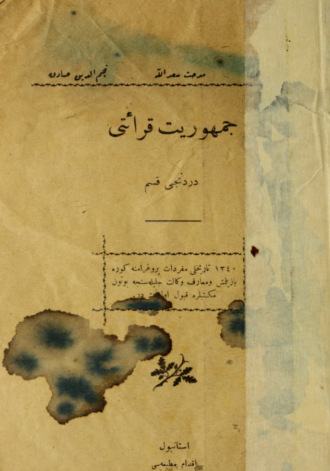 مدحت سعدالله نجم الدین صادق
جمهوریت قرائتی
دردنجی قسم
١٣٤٠ تاریخلی مفردات پروغرامنه کوره
یازلمش ومعارف وکالت جلیله‌سنجه بوتون
مکتبلره قبول
استانبول
اقدام مطبعه‌سی